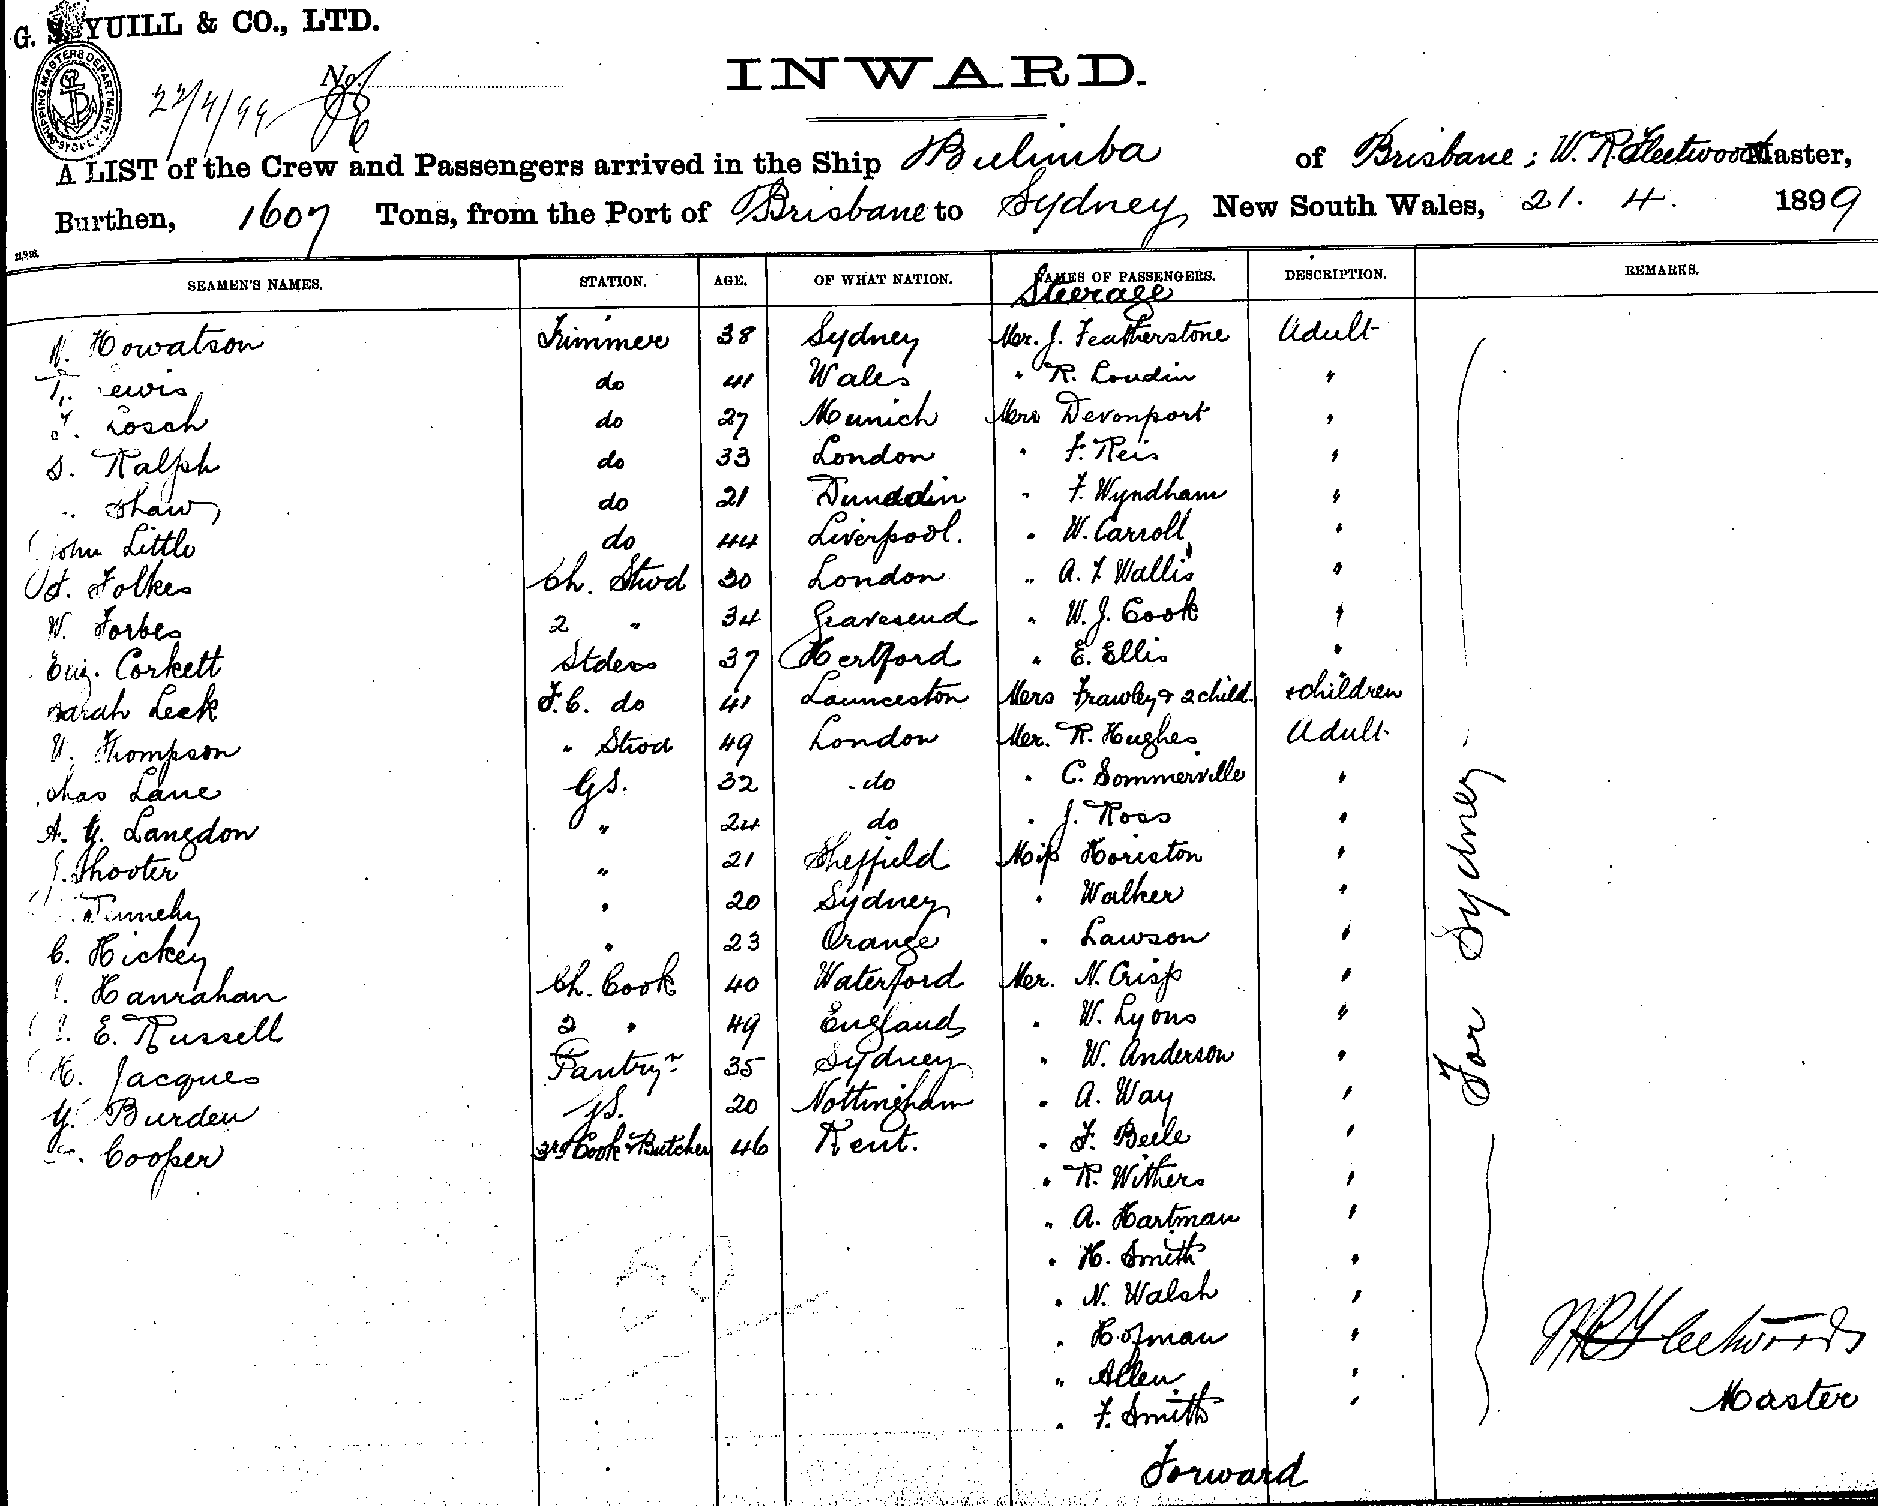 G. S. YUILL & CO., LTD.
INWARD.
22/4/99 No.
A LIST of the Crew and Passengers arrived in the Ship Bulimba of Brisbane; W. R. Fleetwood Master,
Burthen, 1607 Tons, from the Port of Brisbane to Sydney, New South Wales, 21. 4. 1899
SEAMEN'S NAMES. STATION. AGE. OF WHAT NATION. NAMES OF PASSENGERS. DESCRIPTION. REMARKS.
Steerage
Howatson Trimmer 38 Sydney Mr. J. Featherstone Adult
T. Lewis do 41 Wales " R. Loudin "
Losch do 27 Munich Mrs Devonport "
S. Ralph do 33 London " F. Reis "
" Shaw do 21 Dunedin " F. Wyndham "
John Little do 44 Liverpool. " W. Carroll "
Folkes Ch. Stwd 30 London " A. F. Wallis "
W. Forbes 2 " 34 Gravesend " W. J. Cook "
Eug. Corkett Stdess 37 Hertford " E. Ellis "
Sarah Leek F.C. do 41 Launceston Mrs Frawley & 2 child. & children
Thompson " Stwd 49 London Mr. R. Hughes Adult
Chas Lane GS. 32 do " C. Sommerville "
A. G. Langdon " 24 do " J. Ross "
Shooter " 21 Sheffield Miss Horiston "
" 20 Sydney " Walker "
C. Hickey " 23 Orange " Lawson "
Hanrahan Ch. Cook 40 Waterford Mr. N. Crisp "
E. Russell 2 " 49 England " W. Lyons "
H. Jacques Pantryn 35 Sydney " W. Anderson "
G. Burden GS. 20 Nottingham " A. Way "
Cooper 3rd Cook & Butcher 46 Kent. " F. Beele "
" R. Withers "
" A. Hartman "
" H. Smith "
" N. Walsh "
" Hofman "
" Allen "
" F. Smith "
Forward
For Sydney
W R Fleetwood
Master